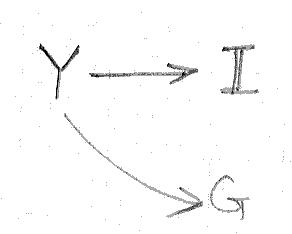 Y → 𝕀
G